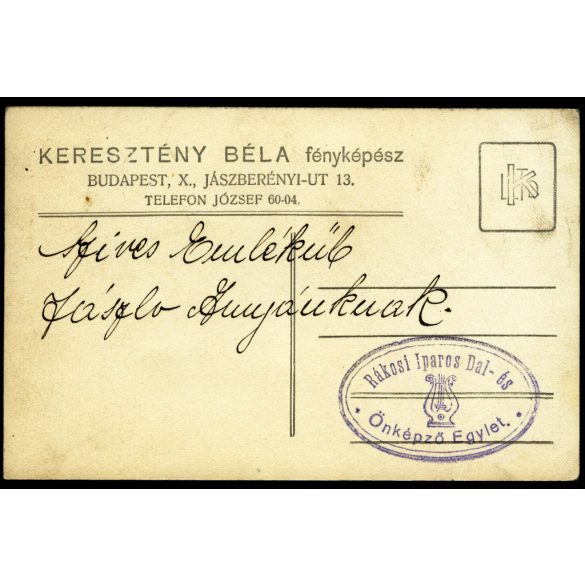 KERESZTÉNY BÉLA fényképész
BUDAPEST, X., JÁSZBERÉNYI-UT 13.
TELEFON JÓZSEF 60-04.
Szives Emlékül
László Anyánknak.
Rákosi Iparos Dal- és
Önképző Egylet.